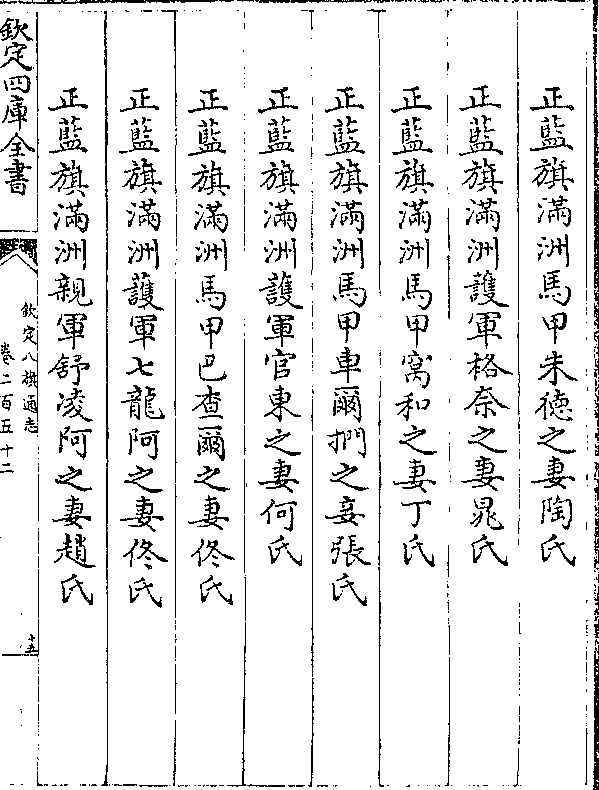 正藍旗滿洲馬甲朱德之妻陶氏
正藍旗滿洲護軍格奈之妻晁氏
正藍旗滿洲馬甲窩和之妻丁氏
正藍旗滿洲馬甲車爾捫之妾張氏
正藍旗滿洲護軍官東之妻何氏
正藍旗滿洲馬甲巴查爾之妻佟氏
正藍旗滿洲護軍七龍阿之妻佟氏
正藍旗滿洲親軍舒凌阿之妻趙氏
欽定四庫全書
欽定八旗通志
卷二百五十二
十五